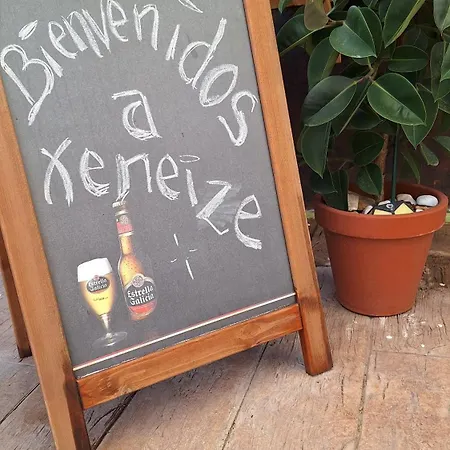 Bienvenidos
a
xeneize
Estrella
Galicia
Estrella
Galicia